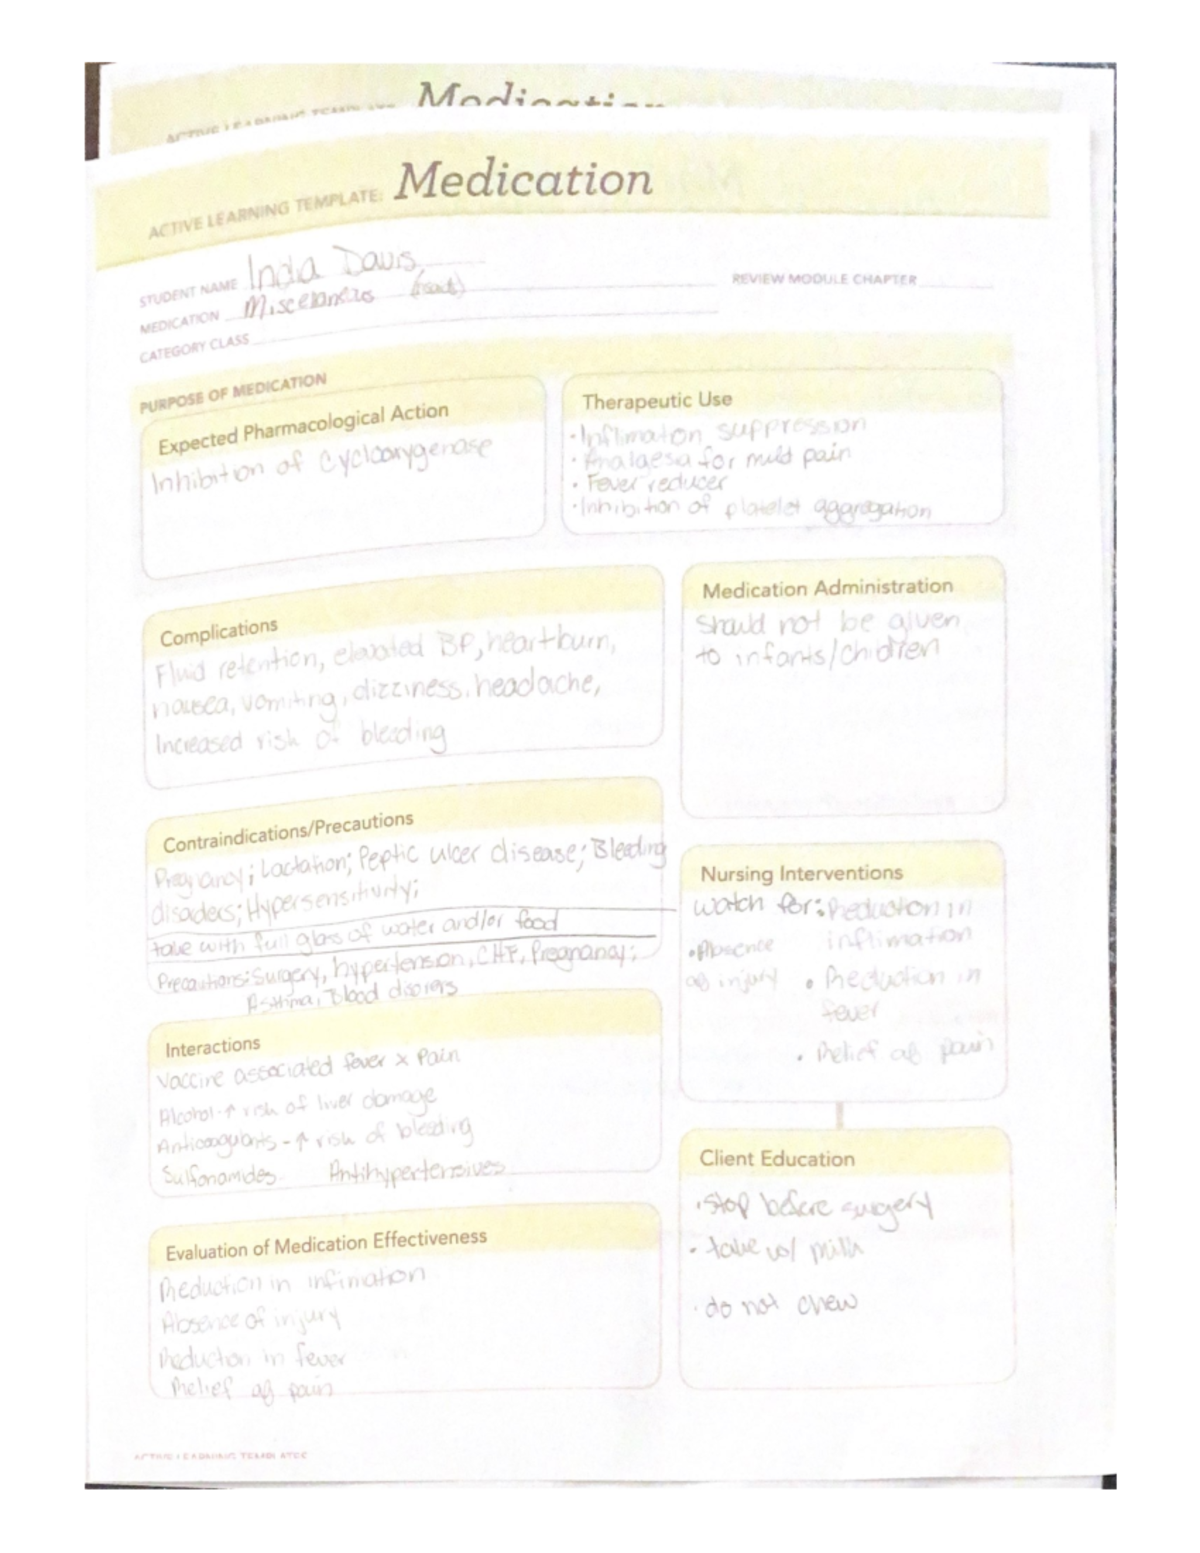 Medication
ACTIVE LEARNING TEMPLATE: Medication
STUDENT NAME India Davis
MEDICATION Miscelaneos
REVIEW MODULE CHAPTER
CATEGORY CLASS
PURPOSE OF MEDICATION
Expected Pharmacological Action
Inhibition of Cyclooxygenase
Therapeutic Use
• Inflimation suppression
• Analgesa for mild pain
• Fever reducer
• Inhibition of platelet aggregation
Complications
Fluid retention, elevated BP, heartburn,
nausea, vomiting, dizziness, headache,
Increased risk of bleeding
Medication Administration
Should not be given
to infants/children
Contraindications/Precautions
Pregnancy; Lactation; Peptic ulcer disease; Bleeding
disorders; Hypersensitivity;
take with full glass of water and/or food
Precautions: Surgery, hypertension, CHF, Pregnancy;
Asthma, Blood disorers
Nursing Interventions
watch for: Reduction in
inflimation
• Absence
of injury
• Reduction in
fever
• Relief of pain
Interactions
Vaccine associated fever x Pain
Alcohol - ↑ risk of liver damage
Anticoagulants - ↑ risk of bleeding
Sulfonamides Antihypertensives
Client Education
• stop before surgery
• take w/ milk
• do not chew
Evaluation of Medication Effectiveness
Reduction in inflimation
Absence of injury
Reduction in fever
Relief of pain
ACTIVE LEARNING TEMPLATES